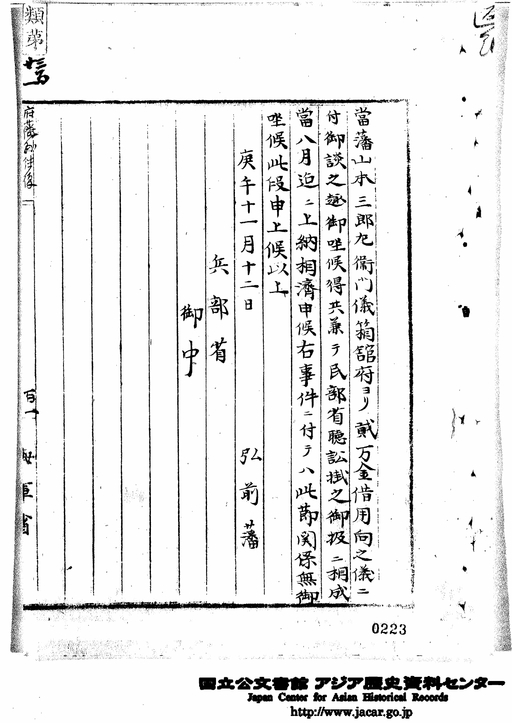 當藩山本三郎左衛門儀箱館府ヨリ貳万金借用向之儀ニ
付御談之趣御座候得共兼テ民部省聴訟掛之御扱ニ相成
當八月迄ニ上納相濟申候右事件ニ付テハ此節関係無御
座候此段申上候以上
庚午十一月十二日
弘前藩
兵部省
御中
類第
海軍省
0223
国立公文書館 アジア歴史資料センター
Japan Center for Asian Historical Records
http://www.jacar.go.jp